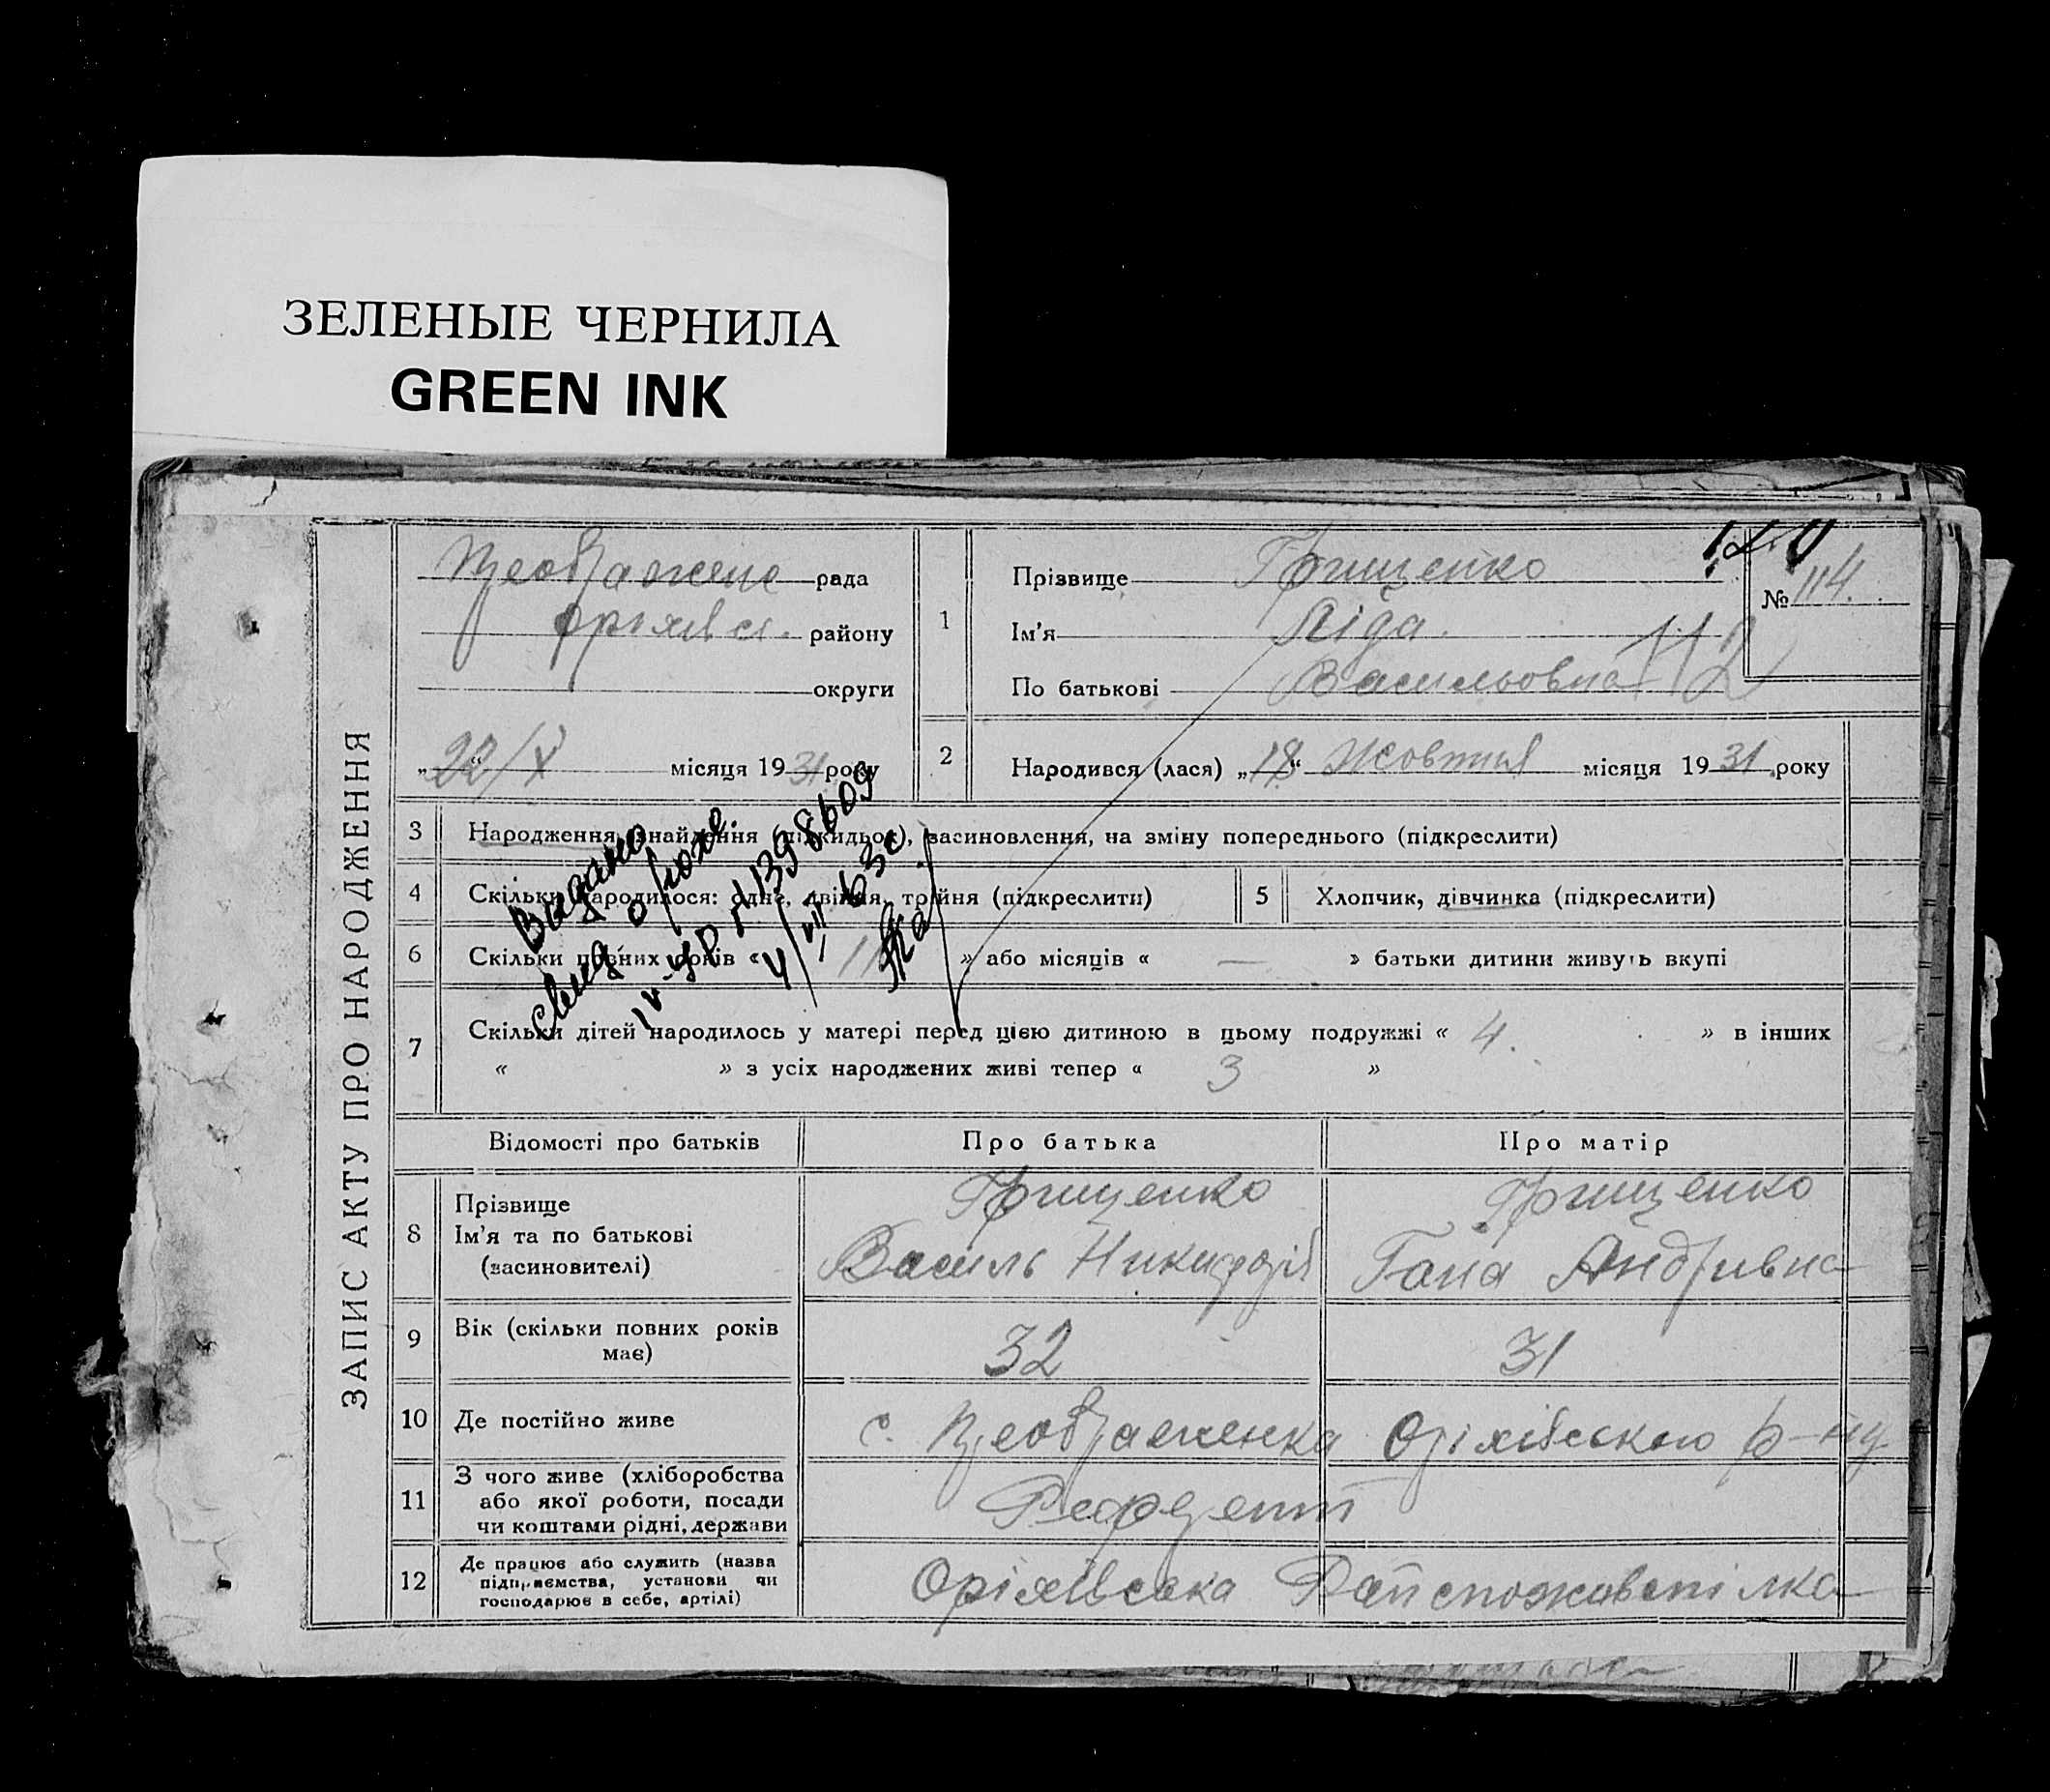 ЗЕЛЕНЫЕ ЧЕРНИЛА
GREEN INK
ЗАПИС АКТУ ПРО НАРОДЖЕННЯ
Преображене рада
Оріхівсь. району
округи
„22/X“ місяця 1931 року
1
Прізвище Грищенко
Ім'я Ліда
По батькові Васильовна
№ 114.
112
2
Народився (лася) „18“ Жовтня місяця 1931 року
3 Народження, знайдення (підкидьок), засиновлення, на зміну попереднього (підкреслити)
4 Скільки народилося: одне, двійня, тройня (підкреслити)
5 Хлопчик, дівчинка (підкреслити)
6 Скільки повних років « 11 » або місяців « — » батьки дитини живуть вкупі
7 Скільки дітей народилось у матері перед цією дитиною в цьому подружжі « 4. » в інших
« » з усіх народжених живі тепер « 3 »
Видано
свид о рожд.
IV-УР № 1398609
4/VII 63г
Відомості про батьків
Про батька
Про матір
8 Прізвище
Ім'я та по батькові
(засиновителі)
Грищенко
Василь Никифорів
Грищенко
Гана Андривна
9 Вік (скільки повних років
має)
32
31
10 Де постійно живе
с. Преображенка Оріхівського р-ну
11 З чого живе (хліборобства
або якої роботи, посади
чи коштами рідні, держави
Референт
12 Де працює або служить (назва
підприємства, установи чи
господарює в себе, артілі)
Оріхівська Райспоживспілка